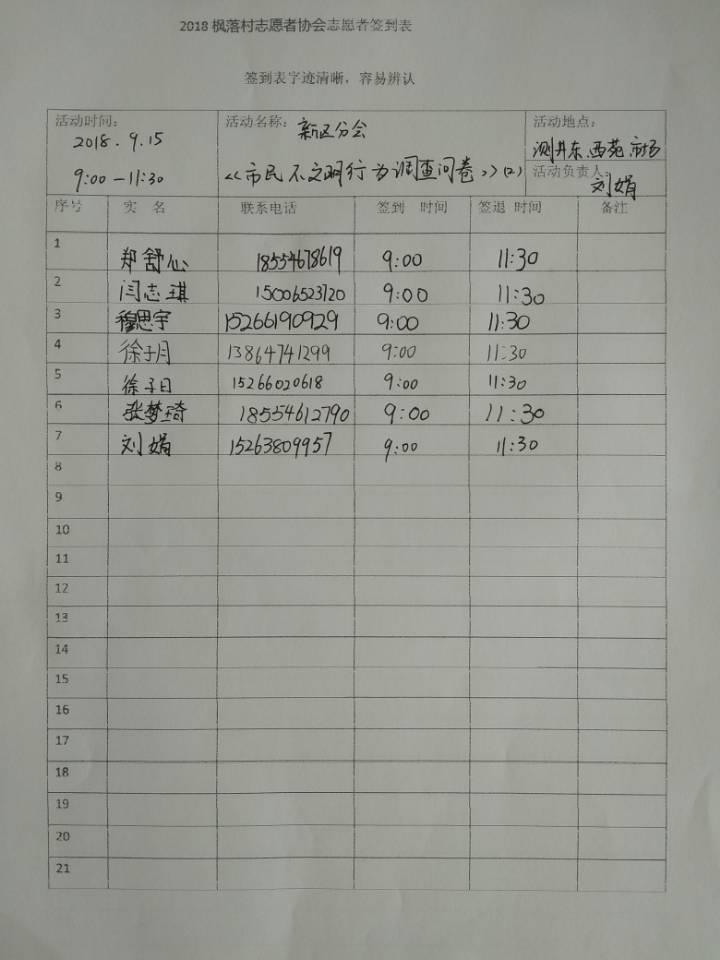 2018 枫落村志愿者协会志愿者签到表
签到表字迹清晰，容易辨认
活动时间： 活动名称：新区分会 活动地点：
2018.9.15 测井东.西苑.市场
9:00-11:30 《市民不文明行为调查问卷》(2) 活动负责人：刘娟
序号 实 名 联系电话 签到 时间 签退 时间 备注
1 郑舒心 18554678619 9:00 11:30
2 闫志琪 15006523720 9:00 11:30
3 穆思宇 15266190929 9:00 11:30
4 徐子月 13864741299 9:00 11:30
5 徐子日 15266020618 9:00 11:30
6 张梦琦 18554612790 9:00 11:30
7 刘娟 15263809957 9:00 11:30
8
9
10
11
12
13
14
15
16
17
18
19
20
21